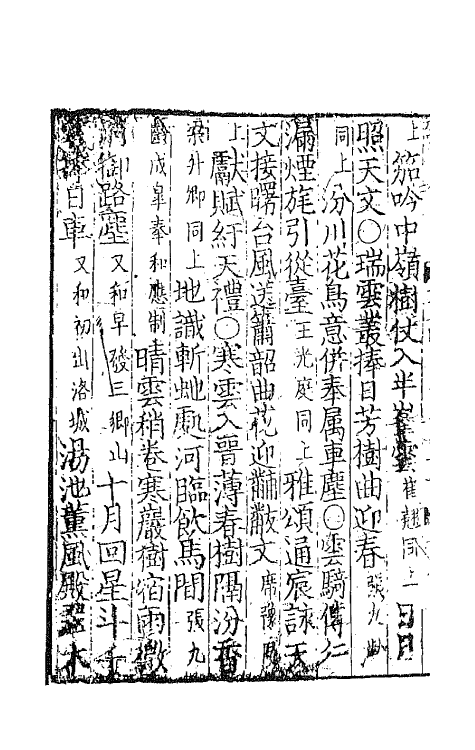 上 笳吟中嶺樹仗入半峯雲 崔翹同上 日月
照天文〇瑞雲叢捧日芳樹曲迎春 張九
同上 汾川花鳥意供奉属車塵〇雲騎傳仁
漏煙旄引從臺 王光庭同上 雅頌通宸詠天
文接曙台風送簫韶曲花迎黼黻文 席豫同
上 獻賦紆天禮〇寒雲入晉薄春樹隔汾香
梁升卿同上 地識斬虵處河臨飲馬間 張九
齡成皐奉和應制 晴雲稍卷寒巖樹宿雨微
御路塵 又和早發三鄉山 十月回星斗千
自車 又和初出洛城 湯池薰風殿 水